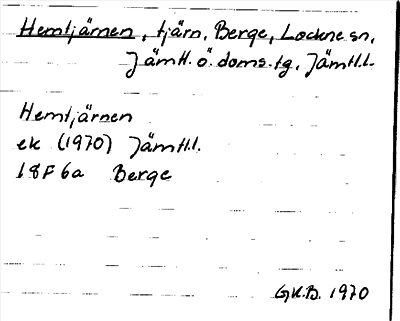 Hemtjärnen, tjärn, Berge, Lockne sn,
Jämtl. ö. doms. tg, Jämtl.l.
Hemtjärnen
ek (1970) Jämtl.l.
18F 6a Berge
G.K.B. 1970